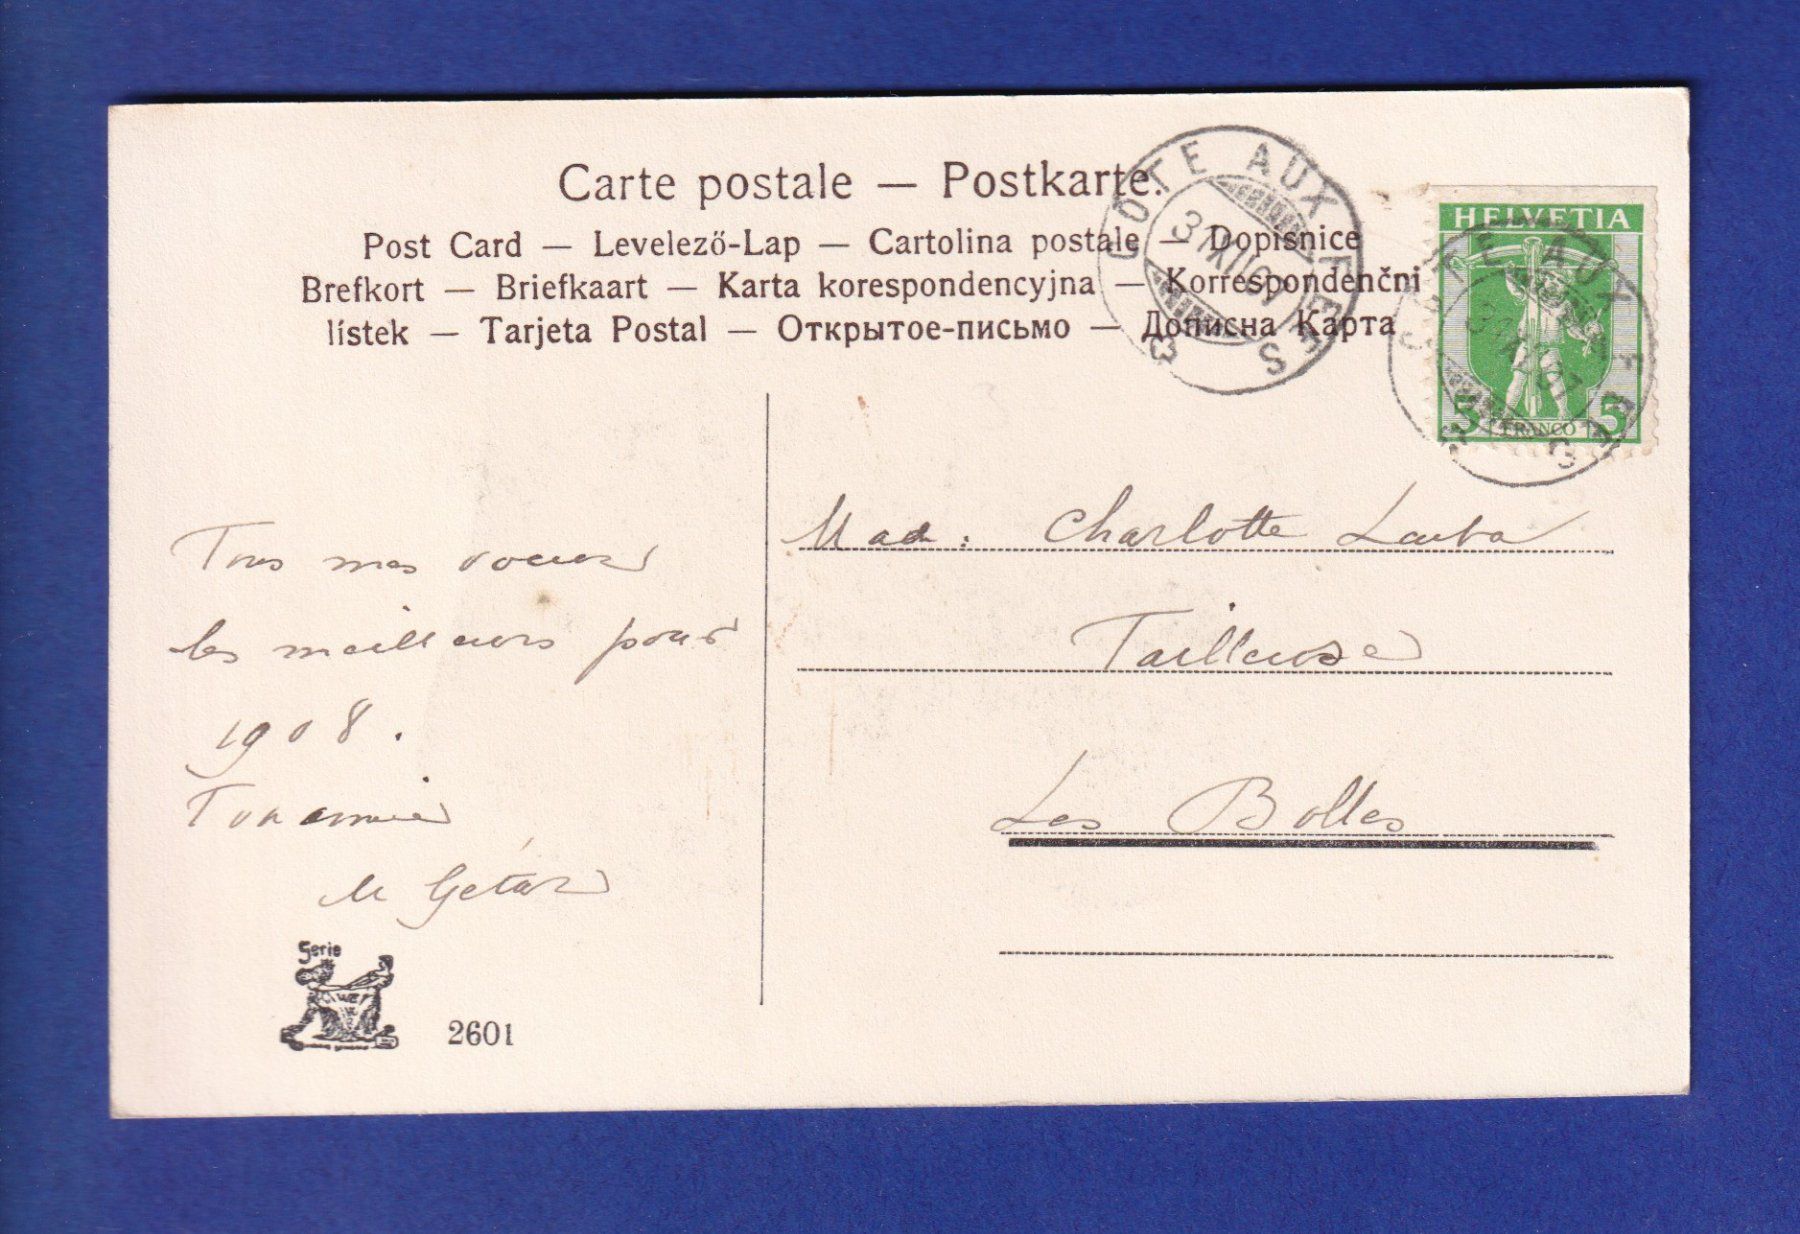 Carte postale — Postkarte.
Post Card — Levelező-Lap — Cartolina postale — Dopisnice
Brefkort — Briefkaart — Karta korespondencyjna — Korrespondenční
lístek — Tarjeta Postal — Открытое-письмо — Дописна Карта
COTE AUX FEES
31 XII 07
HELVETIA
5 FRANCO 5
COTE AUX FEES
Tous mes voeux
les meilleurs pour
1908.
Ton amie
Mad: Charlotte
Tailleuse
Les Bolles
Serie
2601